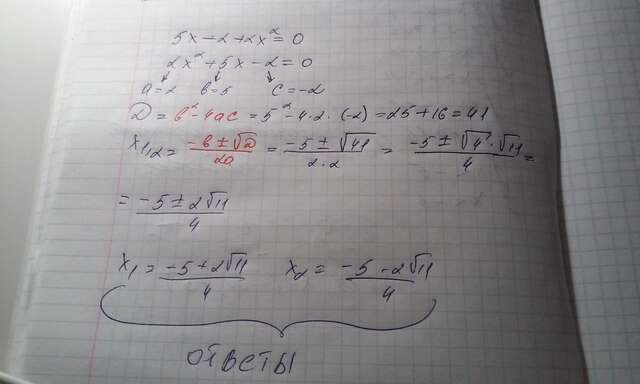 5x-2+2x²=0
2x²+5x-2=0
a=2 b=5 c=-2
D = b²-4ac = 5²-4·2·(-2) = 25+16 = 41
x₁,₂ = (-b±√D)/2a = (-5±√41)/2·2 = (-5±√4·√11)/4 =
= (-5±2√11)/4
x₁ = (-5+2√11)/4 x₂ = (-5-2√11)/4
ответы